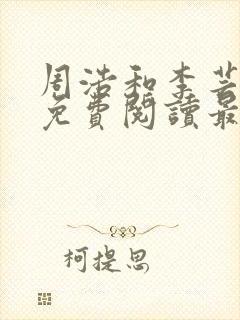 周浩和李芸
免費閱讀最
柯提思